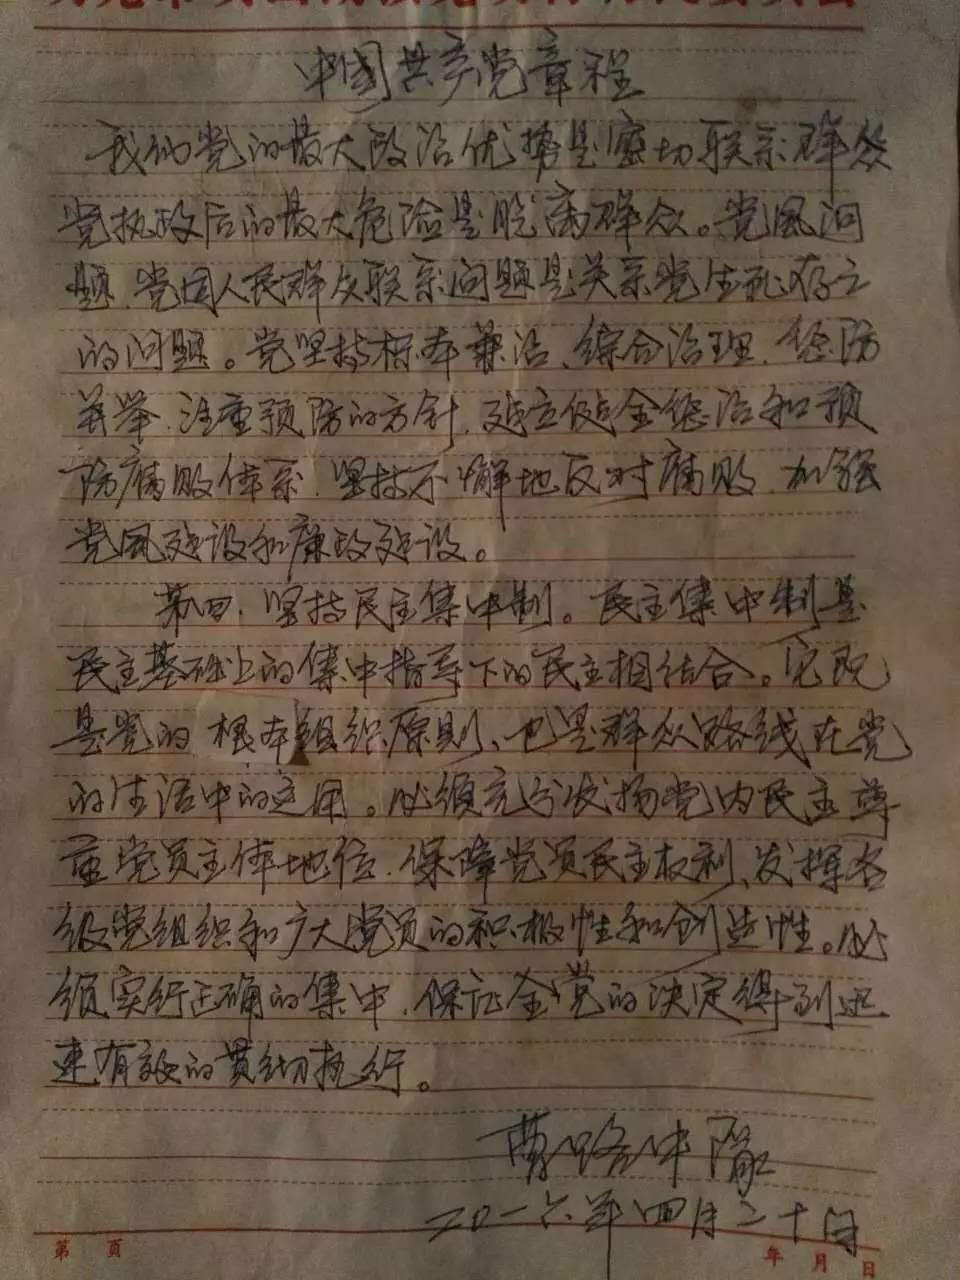 中国共产党章程
我们党的最大政治优势是密切联系群众
党执政后的最大危险是脱离群众。党风问
题、党同人民群众联系问题是关系党生死存亡
的问题。党坚持标本兼治、综合治理、惩防
并举、注重预防的方针,建立健全惩治和预
防腐败体系,坚持不懈地反对腐败,加强
党风建设和廉政建设。
第四,坚持民主集中制。民主集中制是
民主基础上的集中指导下的民主相结合。它既
是党的根本组织原则、也是群众路线在党
的生活中的运用。必须充分发扬党内民主尊
重党员主体地位,保障党员民主权利、发挥各
级党组织和广大党员的积极性和创造性。必
须实行正确的集中,保证全党的决定得到迅
速有效的贯彻执行。
曹路中
二〇一六年四月二十日
第 页
年 月 日